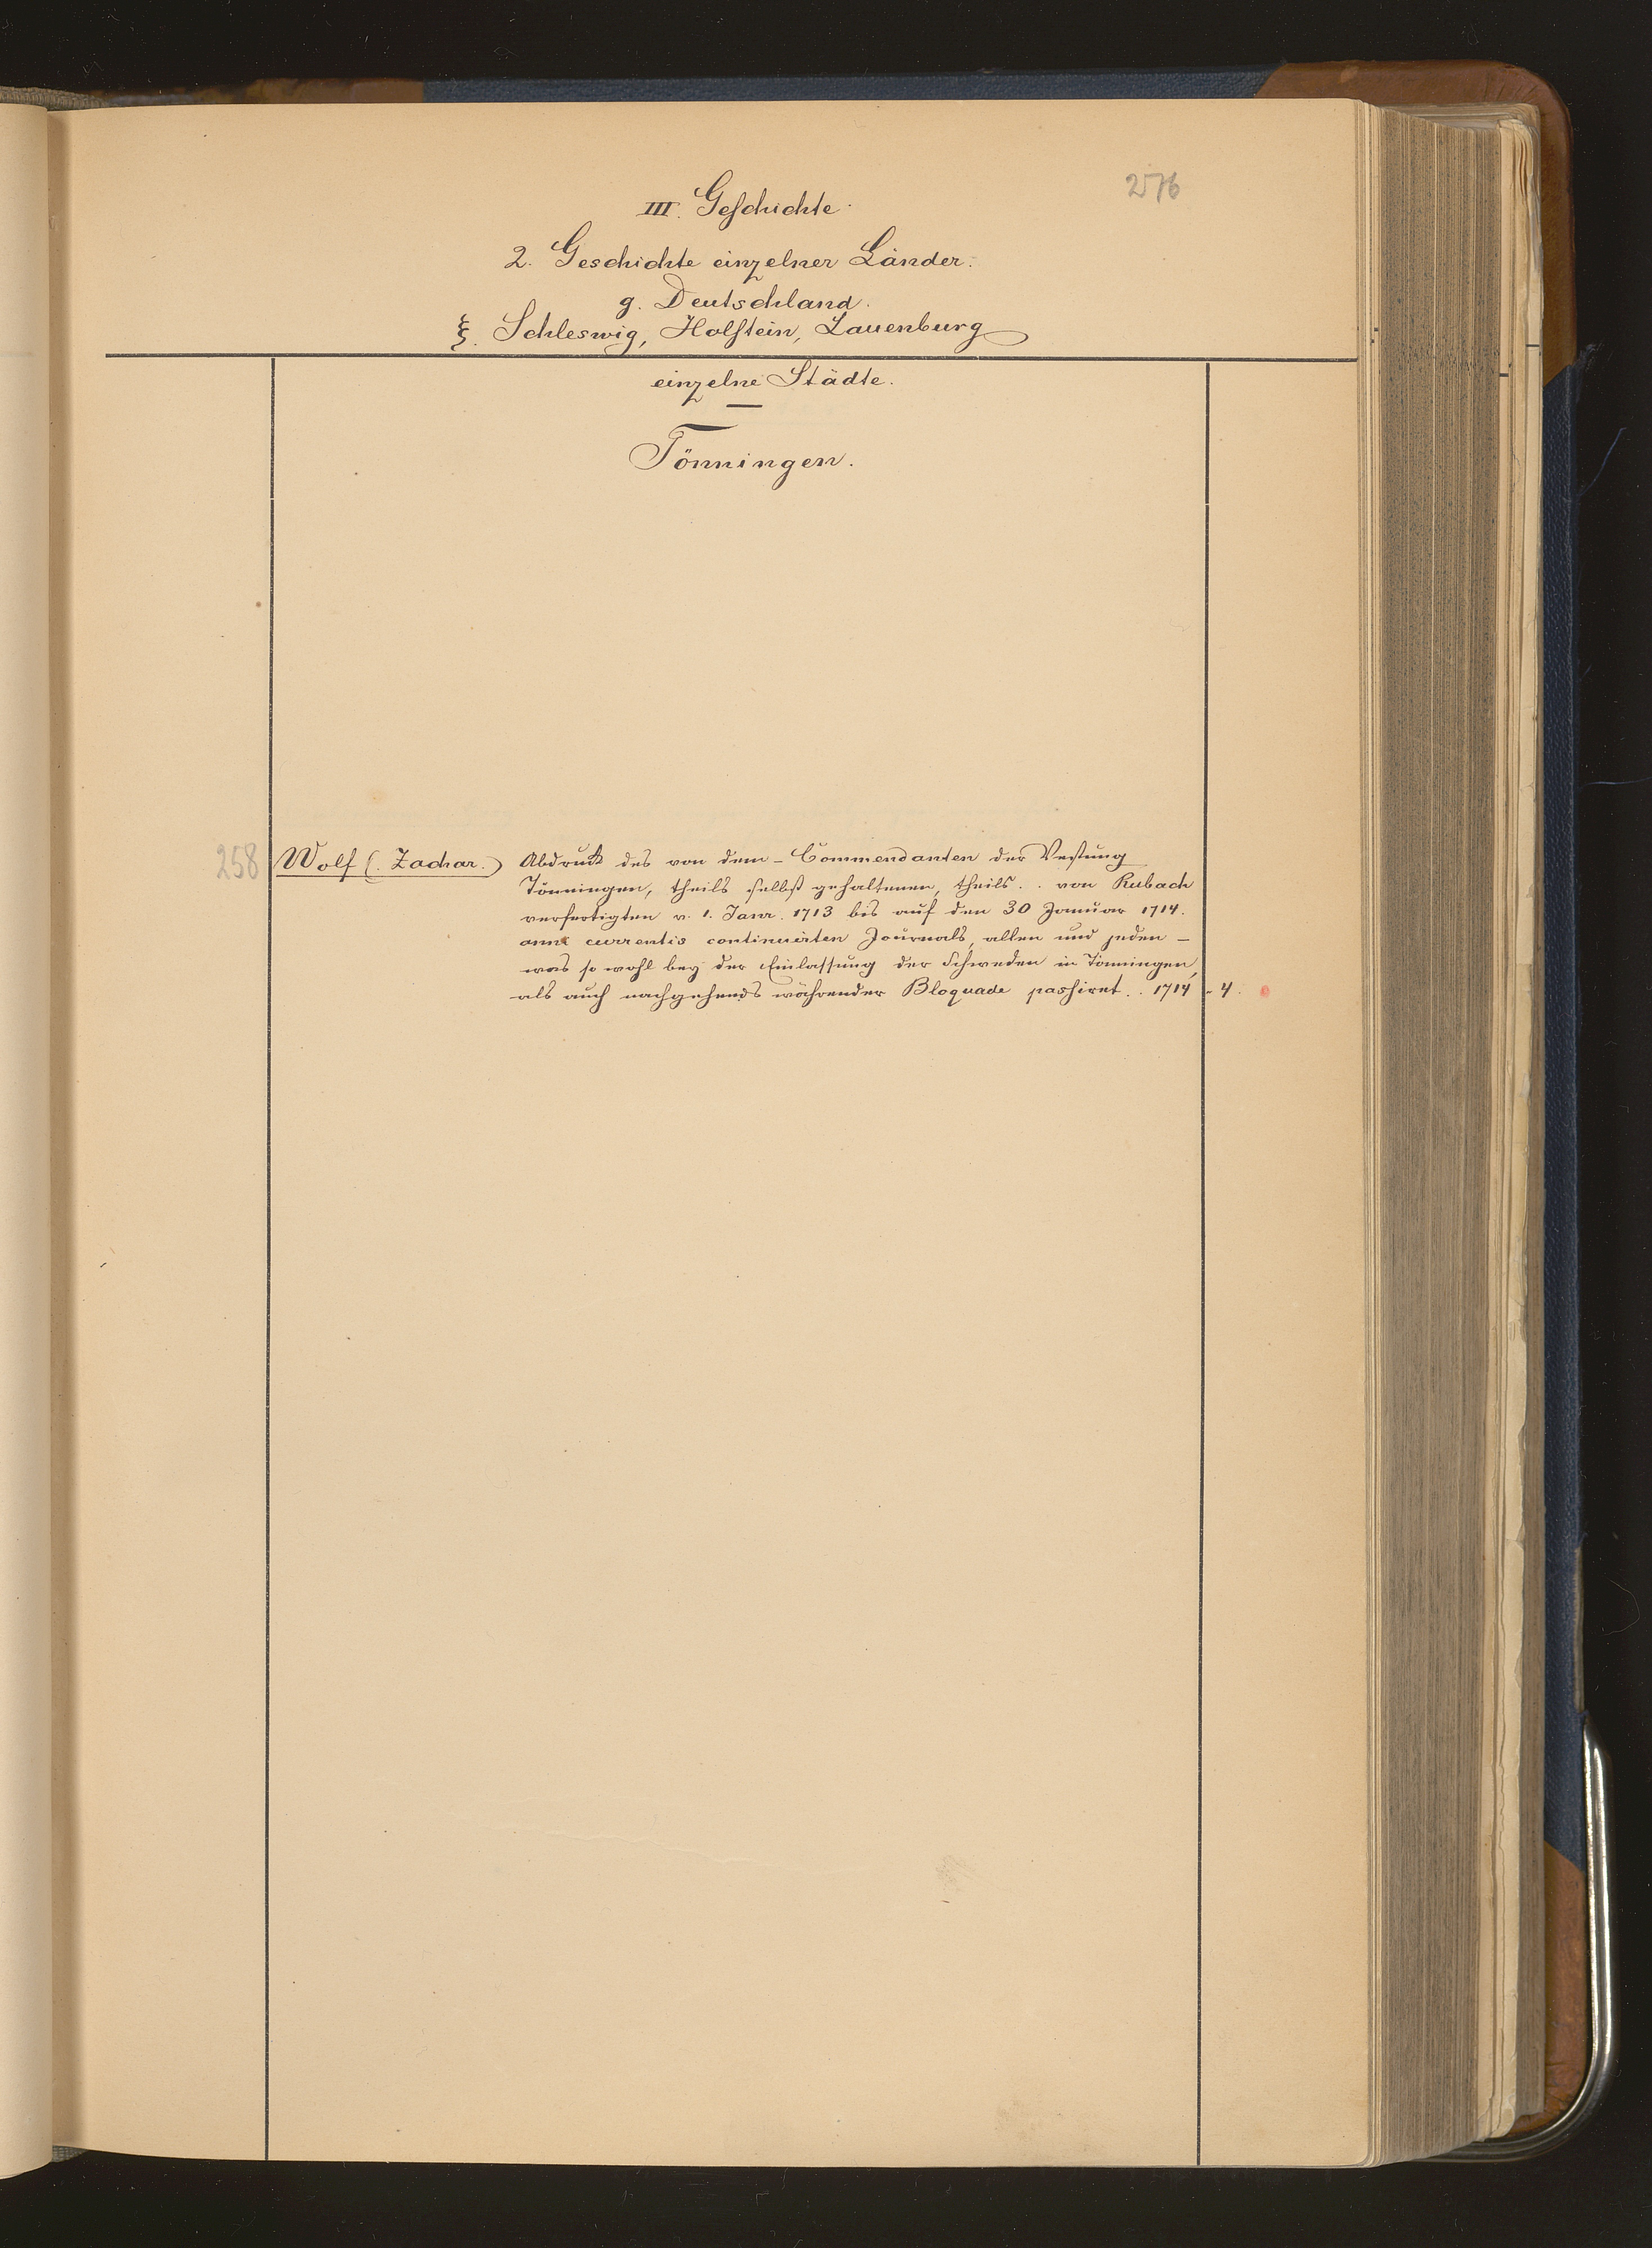 276
III. Geschichte.
2. Geschichte einzelner Länder.
g. Deutschland.
ξ. Schleswig, Holstein, Lauenburg
einzelne Städte.
Tönningen.
258 Wolf (. Zachar.) Abdruck des von dem - Commendanten der Vestung
Tönningen, theils selbst gehaltenen, theils . . von Rubach
verfertigten v. 1. Janr. 1713 bis auf den 30 Januar 1714.
anni currentis continuirten Journals, allen und jeden -
was so wohl bey der Einlassung der Schweden in Tönningen,
als auch nachgehends währender Bloquade passiret . . 1714 - 4.